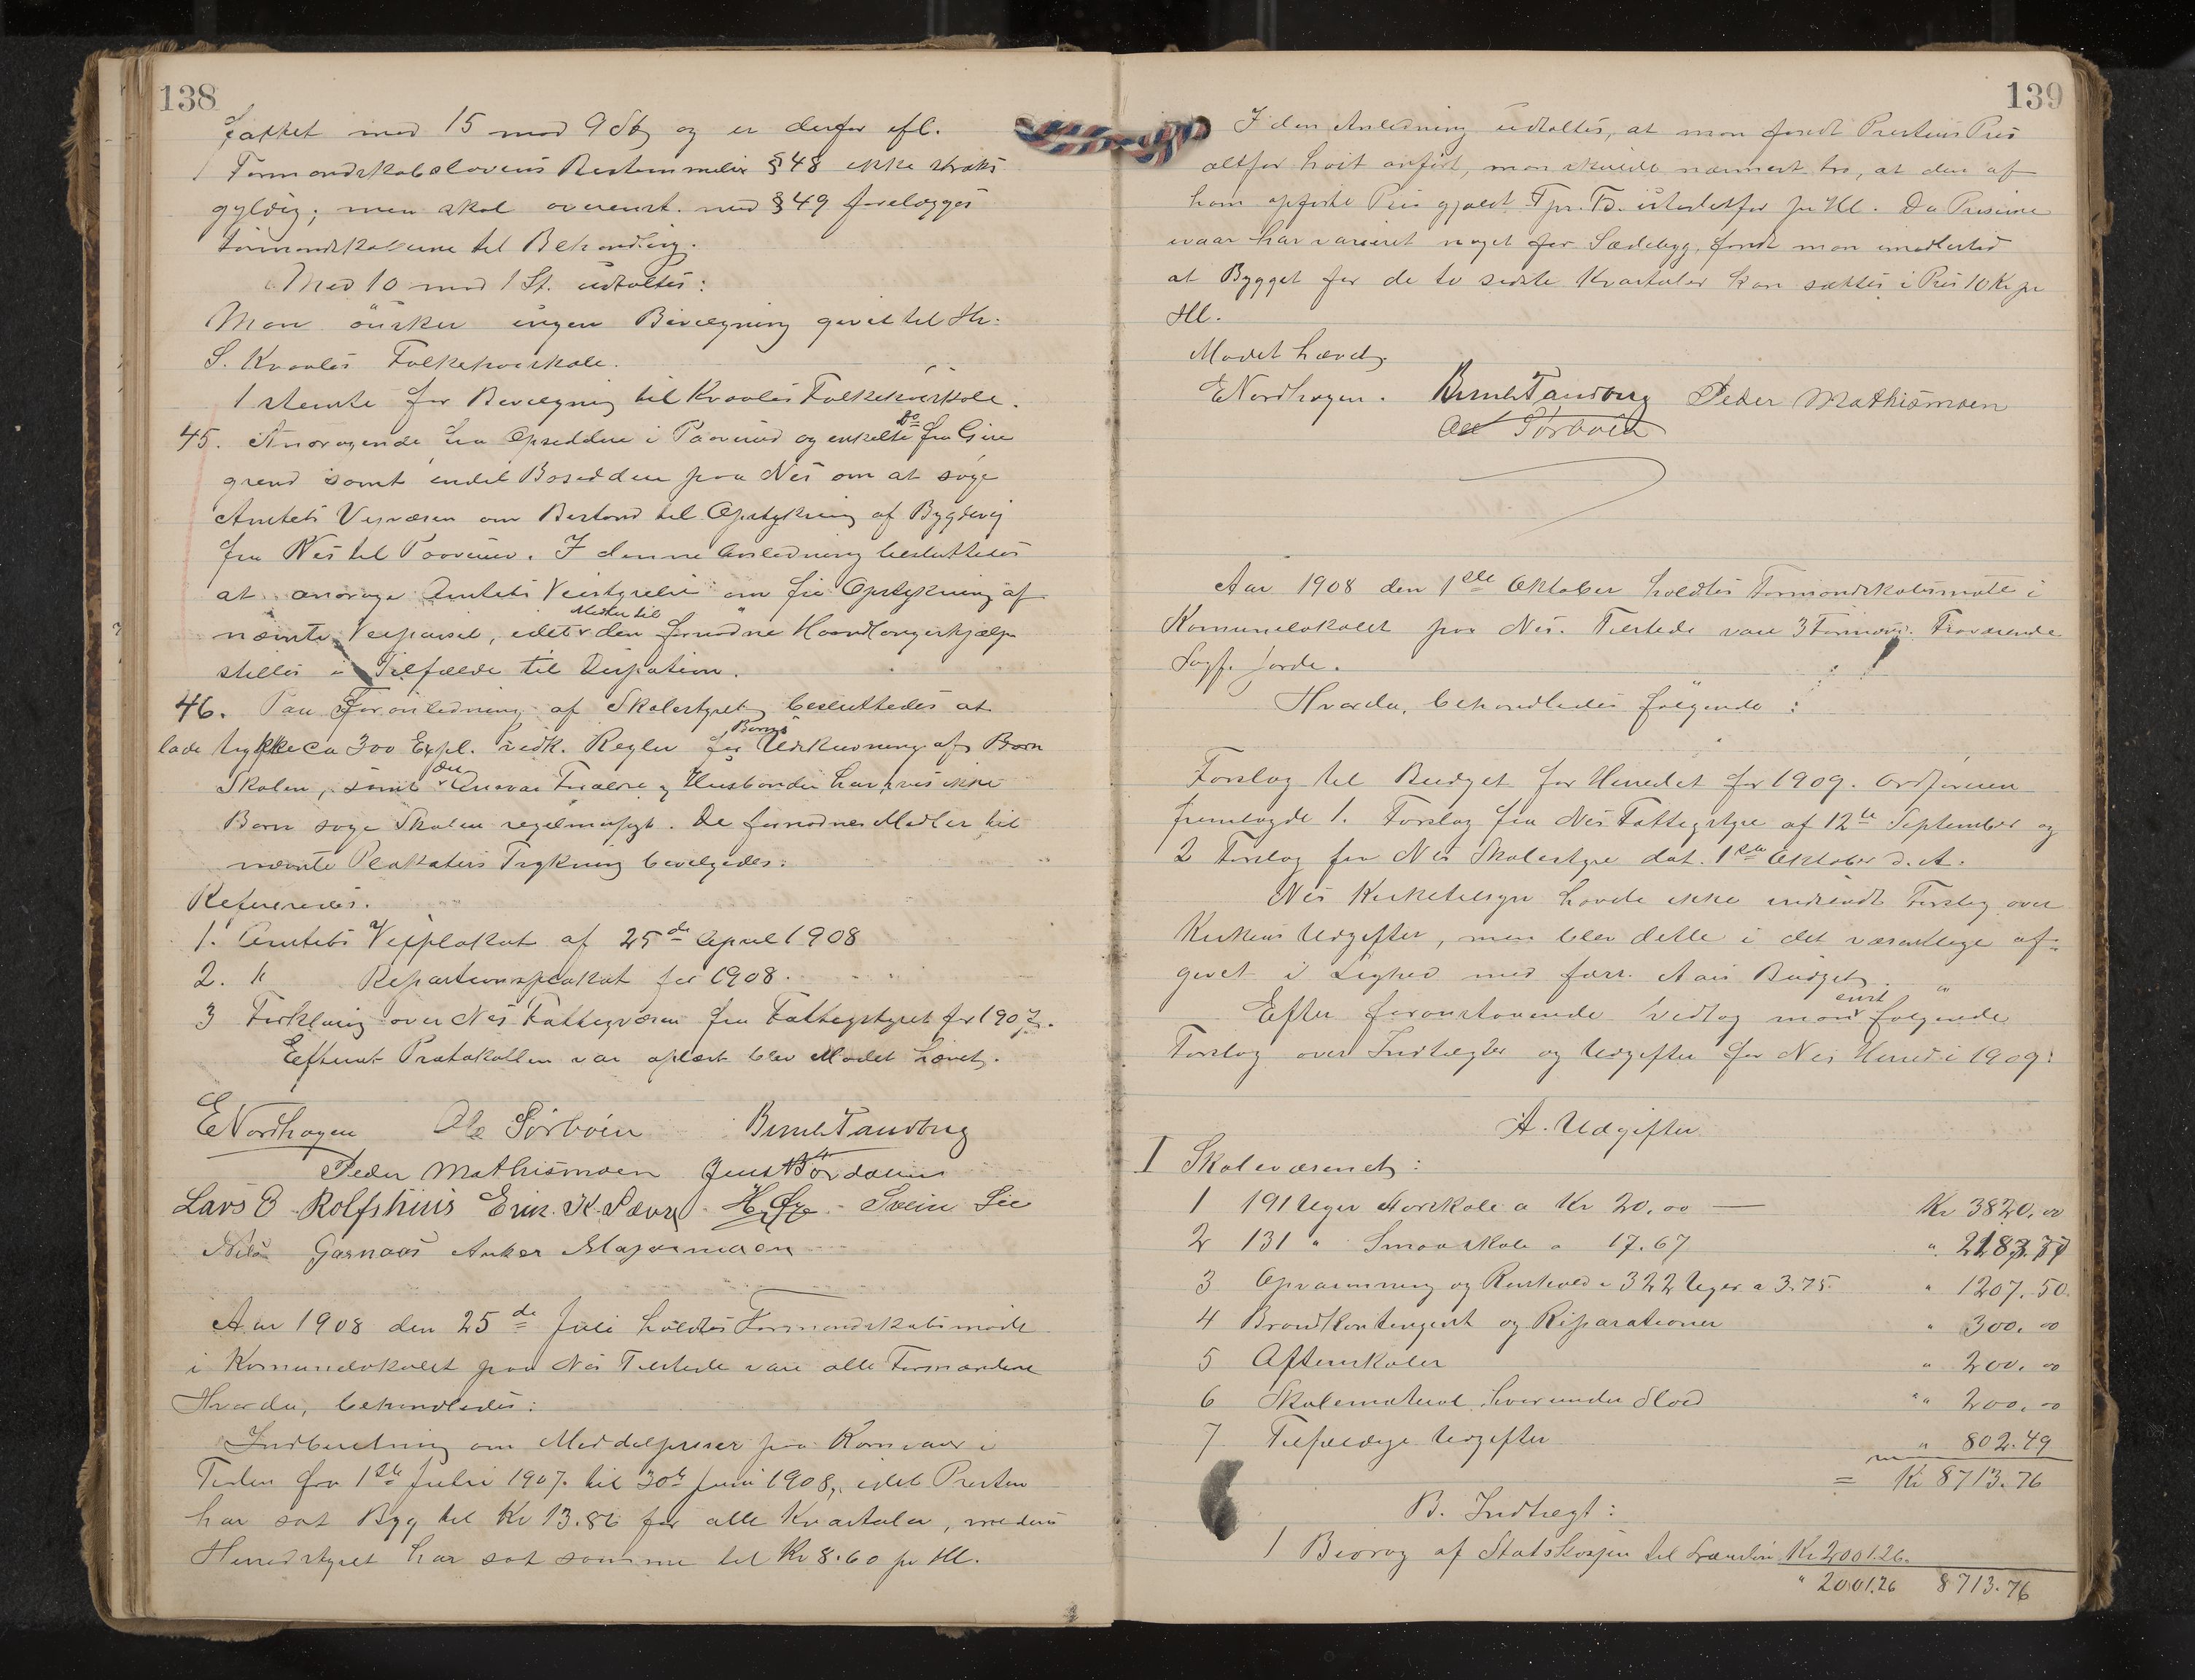 138
fattet med 15 mod 9 St og er derfor efl.
Formandskabslovens Bestemmelse § 48 ikke straks
gyldig; men skal overenst. med § 49 forelægges
formandskaberne til Behandling.
Med 10 mod 1 St. udtaltes:
Man önsker ingen Bevilgning givet til Hr.
S. Kvaales Folkehøiskole.
1 stemte for Bevilgning til Kvaales Folkehøiskole.
45. Andragende fra Opsiddere i og enkelte do fra
grend samt endel Bosiddere paa Nes om at søge
Amtets Veivæsen om Bistand til Opstykning af Bygdevej
fra Nes til I denne Anledning besluttedes
at andrage Amtets Veistyrelse om fri Opstykning af
nævnte Veiparsel, idet Midler til den fornødne Haandlangerhjælp
stilles i Tilfælde til Disposition.
46. Paa Foranledning af Skolestyret besluttedes at
lade trykke ca 300 Expl. vedk. Regler for Børns Udskrivning af Børn
Skolen, samt det Ansvar Forældre og Husbonder har, hvis ikke
Børn søge Skolen regelmæssigt. De fornødne Midler til
nævnte Plakaters Trykning bevilgedes.
Refereredes.
1. Amtets Veiplakat af 25de April 1908
2. " Repartionsplakat for 1908.
3 Forklaring over Nes Fattigvæsen fra Fattigstyret for 1907.
Efterat Protokollen var oplæst blev Mødet hævet.
E Nordhagen Ole Sörbøen Bernh Tandberg
Peder Mathismoen Jens
Lars B Rolfshus Erik K. Sævre H. Øye Svein Lie
Nils Garnaas Anker
Aar 1908 den 25de Juli holdtes Formandskabsmøde
i Komunelokalet paa Nes Tilstede vare alle Formændene
Hvorda, behandledes:
Indberetning om Middelpriser paa Kornvarer i
Tiden fra 1ste Juli 1907 til 30te Juni 1908, idet Presten
har sat Byg til Kr 13.86 for alle Kvartaler, medens
Herredstyret har sat samme til Kr 8.60 pr Hl.
139
I den Anledning udtaltes, at man fandt Prestens Pris
altfor høit anført, man skulde nærmest tro, at den af
ham opførte Pris gjældt pr. Td. istedetfor pr Hl. Da Priserne
ivaar har varieret noget for Sædebyg, fandt man imidlertid
at Bygget for de to sidste Kvartaler kan sættes i Pris 10 Kr pr
Hl.
Mødet hævet.
E Nordhagen. Bernh Tandberg Peder Mathismoen
Ole Sörbøen
Aar 1908 den 1ste Oktober holdtes Formandskabsmöte i
Komunelokalet paa Nes. Tilstede vare 3 Formænd. Fraværende
Sagf. Jorde.
Hvorda, behandledes følgende:
Forslag til Budget for Herredet for 1909. Ordføreren
fremlagde 1. Forslag fra Nes Fattigstyre af 12te September og
2 Forslag fra Nes Skolestyre dat. 1ste Oktober d. A.
Nes Kirketilsyn havde ikke indsendt Forslag over
Kirkens Udgifter, men blev dette i det væsentlige af-
givet i Lighed med forr. Aars Budget.
Efter foranstaaende vedtog man enst. følgende
Forslag over Indtægter og Udgifter for Nes Herred i 1909:
A. Udgifter
I Skolevæsenet:
1 191 Uger Storskole a Kr 20.00 — Kr 3820.00
2 131 " Smaaskole a 17.67 " 2183.77
3 Opvarmning og Renhold a 322 Uger a 3.75. " 1207.50
4 Brandkontingent og Reparationer " 300.00
5 Aftenskoler " 200.00
6 Skolemateriel herunder " 200.00
7 Tilfældige Udgifter " 802.49
= Kr 8713.76
B. Indtægt:
1 Bidrag af Statskassen til Lærerløn Kr 2001.26.
" 2001.26 8713.76